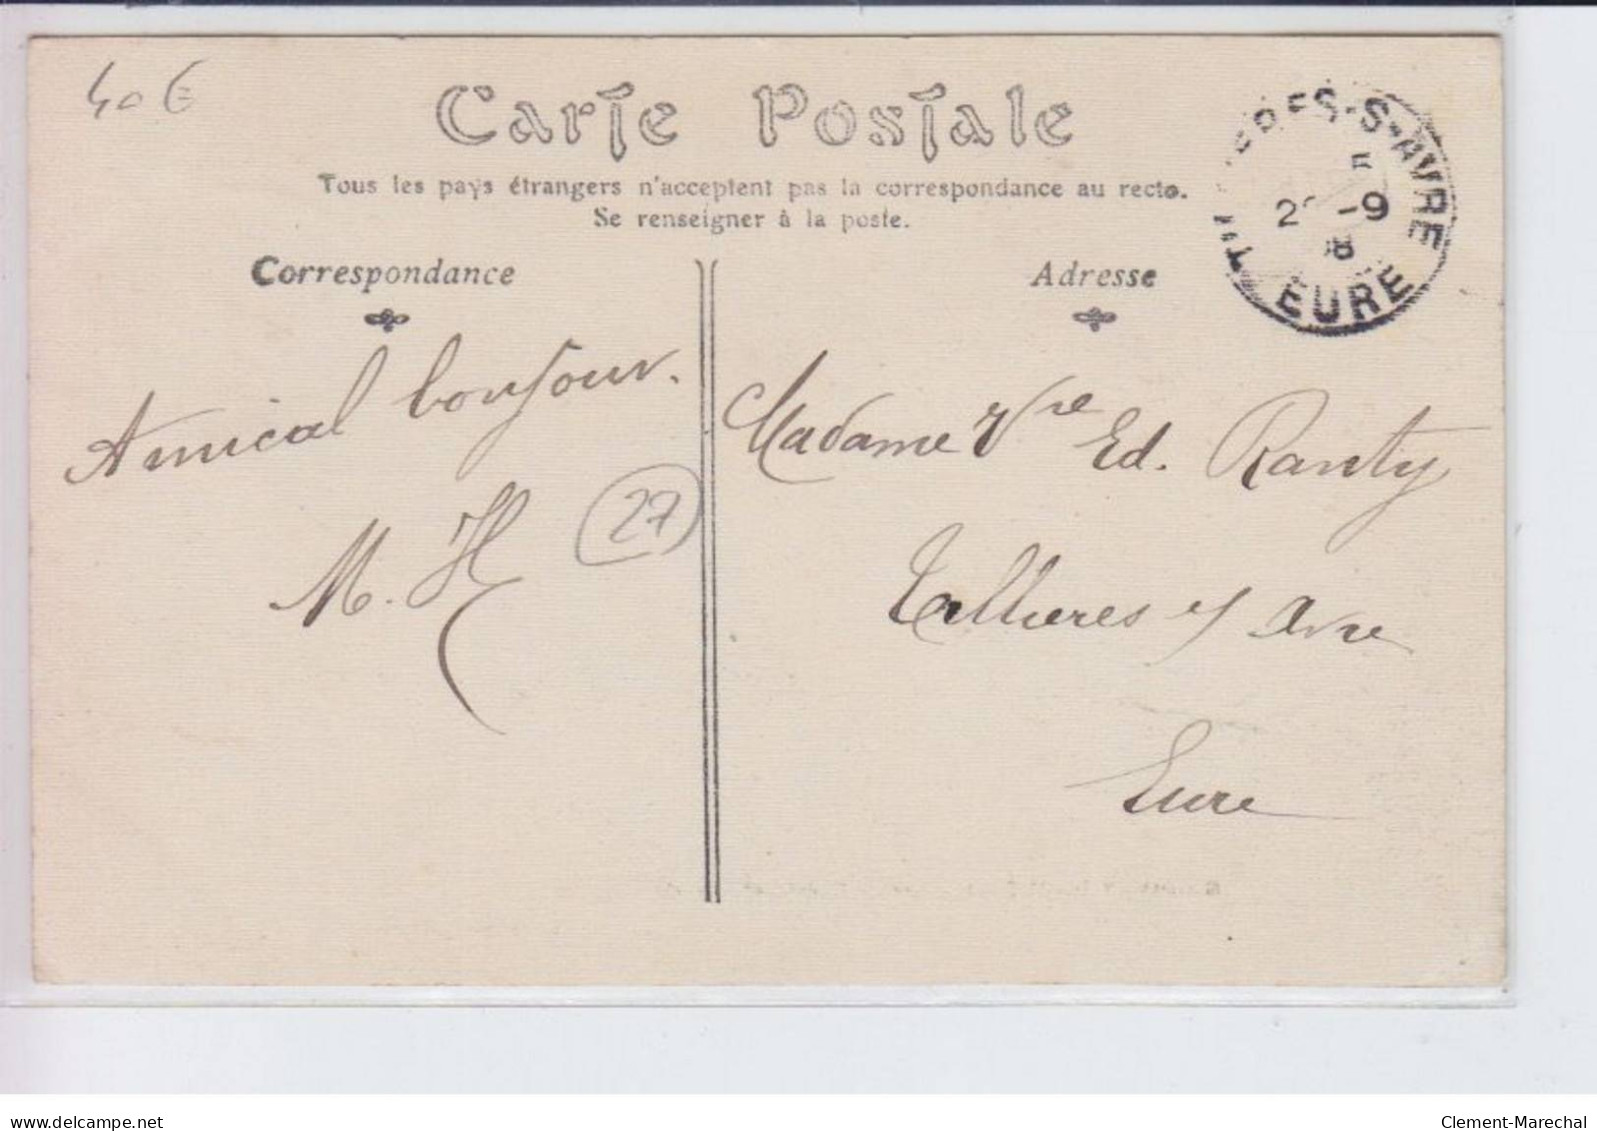 40 €
Carte Postale
Tous les pays étrangers n'acceptent pas la correspondance au recto.
Se renseigner à la poste.
Correspondance
Adresse
S-AVRE
-9
EURE
Amical bonjour.
M. H
27
Madame Vve Ed. Ranty
Tillieres s/ Avre
Eure
www.delcampe.net
Clement-Marechal